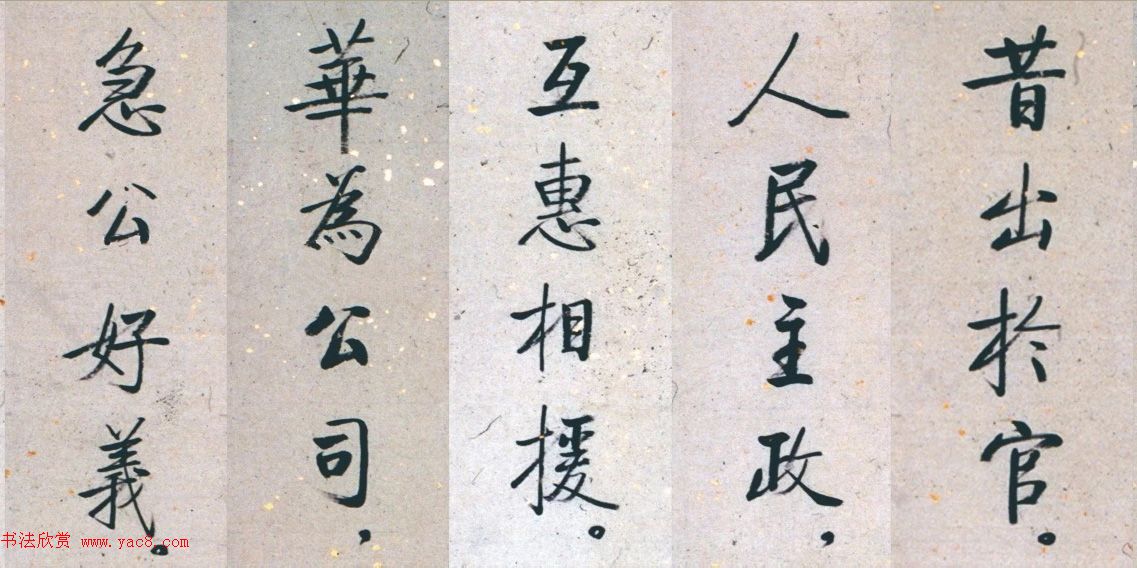 昔出於官。
人民主政，
互惠相援。
華為公司，
急公好義。
书法欣赏 www.yac8.com